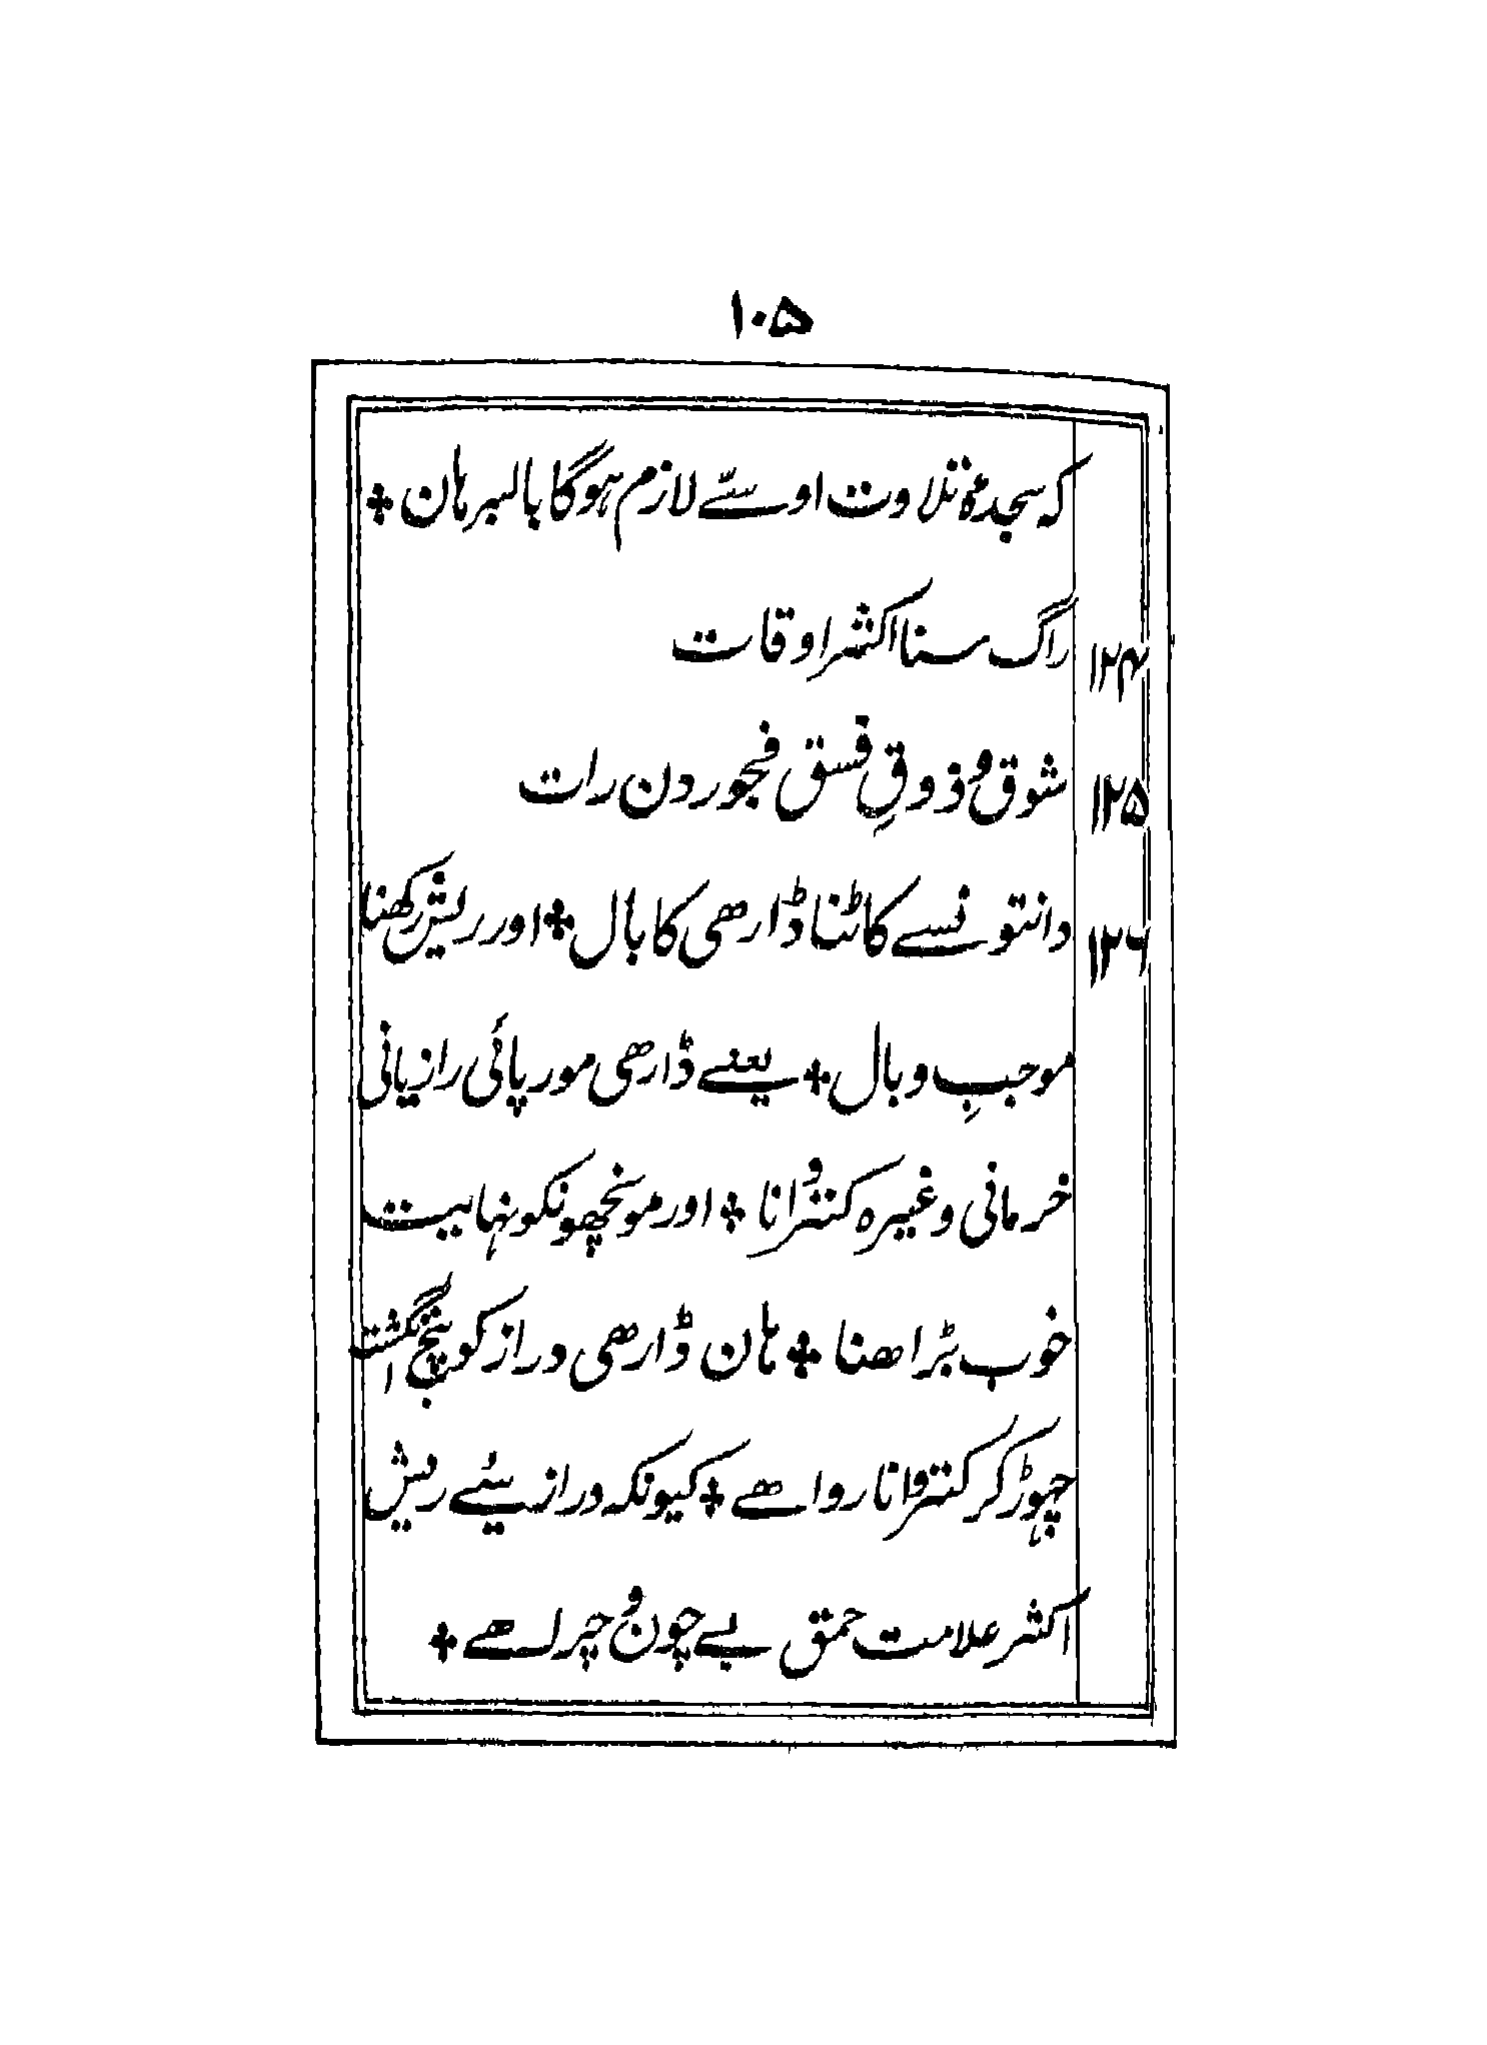 ۱۰۵
کہ سجدۂ تلاوت اوسّے لازم ہوگا بالبرہان ÷
۱۲۴ راگ سننا اکثر اوقات
۱۲۵ شوق و ذوقِ فسق فجور دن رات
۱۲۶ دانتونسے کاٹنا ڈارھی کا بال ÷ اور ریش رکھنا
موجبِ وبال ÷ یعنے ڈارھی مورپائی رازیانی
خرمانی وغیرہ کنترُوانا ÷ اور مونچھونکو نہایت
خوب بڑاھنا ÷ ہان ڈارھی دراز کو پنج انگشت
چہوڑ کر کنتروانا روا ھے ÷ کیونکہ درازئیے ریش
اکثر علامت حمق بے چون و چرا ھے ÷